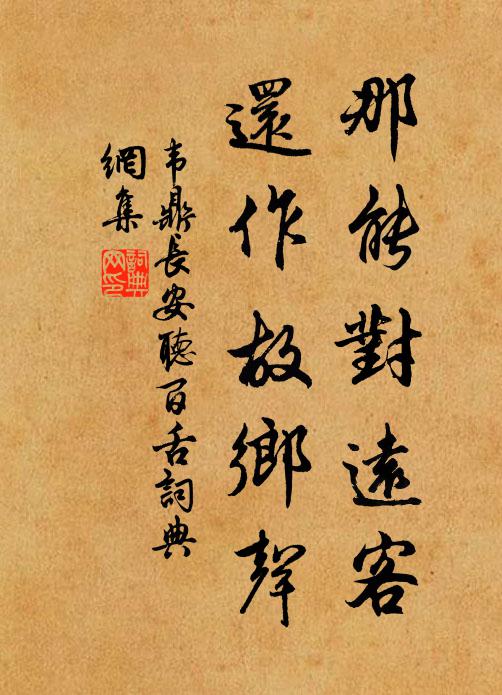 那能對遠客
還作故鄉聲
韦鼎長安聽百舌詞典
網集
詞典
网印